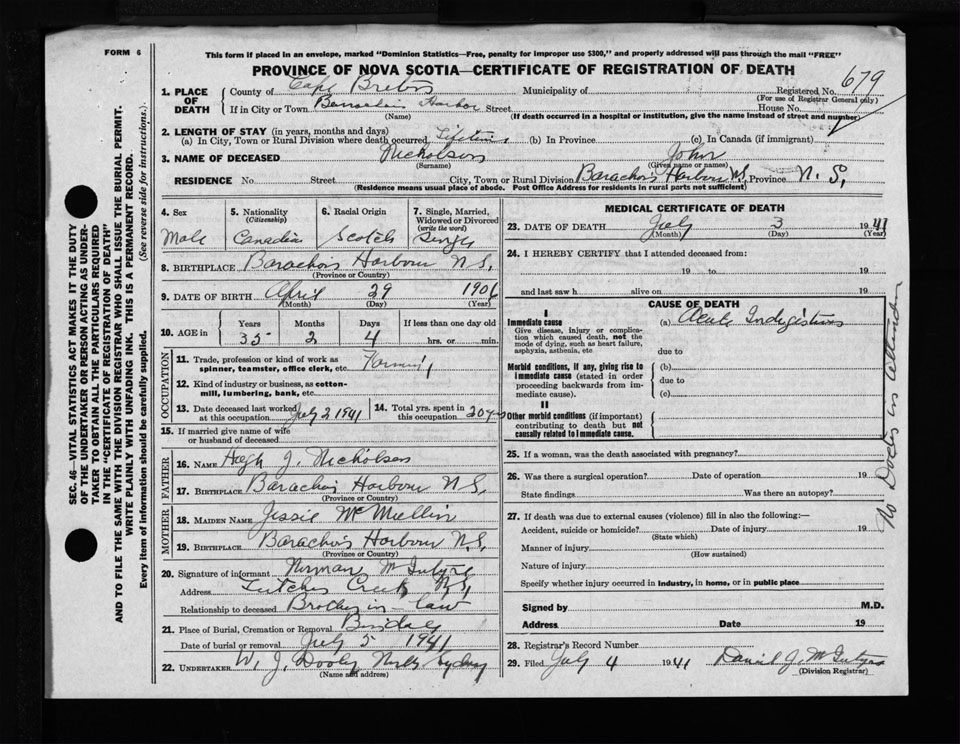 FORM 6
This form if placed in an envelope, marked "Dominion Statistics—Free, penalty for improper use $300," and properly addressed will pass through the mail "FREE"
PROVINCE OF NOVA SCOTIA—CERTIFICATE OF REGISTRATION OF DEATH
679
1. PLACE OF DEATH County of Cape Breton Municipality of Registered No.
(For use of Registrar General only)
If in City or Town Barachois Harbor Street House No.
(Name) (If death occurred in a hospital or institution, give the name instead of street and number)
2. LENGTH OF STAY (in years, months and days)
(a) In City, Town or Rural Division where death occurred Lifetime (b) In Province (c) In Canada (if immigrant)
3. NAME OF DECEASED Nicholson John
(Surname) (Given name or names)
RESIDENCE No. Street City, Town or Rural Division Barachois Harbour Province N.S.
(Residence means usual place of abode. Post Office Address for residents in rural parts not sufficient)
4. Sex Male
5. Nationality (Citizenship) Canadian
6. Racial Origin Scotch
7. Single, Married, Widowed or Divorced (write the word) Single
8. BIRTHPLACE Barachois Harbour N.S.
(Province or Country)
9. DATE OF BIRTH April 29 1906
(Month) (Day) (Year)
10. AGE in Years Months Days If less than one day old
35 2 4 hrs. or min.
OCCUPATION
11. Trade, profession or kind of work as spinner, teamster, office clerk, etc. Farming
12. Kind of industry or business, as cotton-mill, lumbering, bank, etc.
13. Date deceased last worked at this occupation July 2 1941
14. Total yrs. spent in this occupation 20 yrs
15. If married give name of wife or husband of deceased
FATHER
16. NAME Hugh J. Nicholson
17. BIRTHPLACE Barachois Harbour N.S.
(Province or Country)
MOTHER
18. MAIDEN NAME Jessie McMullin
19. BIRTHPLACE Barachois Harbour N.S.
(Province or Country)
20. Signature of informant Norman McIntyre
Address Leitches Creek N.S.
Relationship to deceased Brother in-law
21. Place of Burial, Cremation or Removal
Date of burial or removal July 5 1941
22. UNDERTAKER W. J. Dooley North Sydney
(Name and address)
MEDICAL CERTIFICATE OF DEATH
23. DATE OF DEATH July 3 1941
(Month) (Day) (Year)
24. I HEREBY CERTIFY that I attended deceased from:
19 to 19
and last saw h alive on 19
CAUSE OF DEATH
I
Immediate cause (a) Acute Indigestion
Give disease, injury or complication which caused death, not the mode of dying, such as heart failure, asphyxia, asthenia, etc
due to
Morbid conditions, if any, giving rise to immediate cause (stated in order proceeding backwards from immediate cause).
(b)
due to
(c)
II
Other morbid conditions (if important) contributing to death but not causally related to immediate cause.
No Doctor in attendance
25. If a woman, was the death associated with pregnancy?
26. Was there a surgical operation? Date of operation 19
State findings Was there an autopsy?
27. If death was due to external causes (violence) fill in also the following:—
Accident, suicide or homicide? Date of injury 19
(State which)
Manner of injury
(How sustained)
Nature of injury
Specify whether injury occurred in industry, in home, or in public place
Signed by M.D.
Address Date 19
28. Registrar's Record Number
29. Filed July 4 1941 David J. McIntyre
(Division Registrar)
SEC. 46—VITAL STATISTICS ACT MAKES IT THE DUTY
OF THE UNDERTAKER OR PERSON ACTING AS UNDER-
TAKER TO OBTAIN ALL THE PARTICULARS REQUIRED
IN THE "CERTIFICATE OF REGISTRATION OF DEATH"
AND TO FILE THE SAME WITH THE DIVISION REGISTRAR WHO SHALL ISSUE THE BURIAL PERMIT.
WRITE PLAINLY WITH UNFADING INK. THIS IS A PERMANENT RECORD.
Every item of information should be carefully supplied. (See reverse side for instructions.)